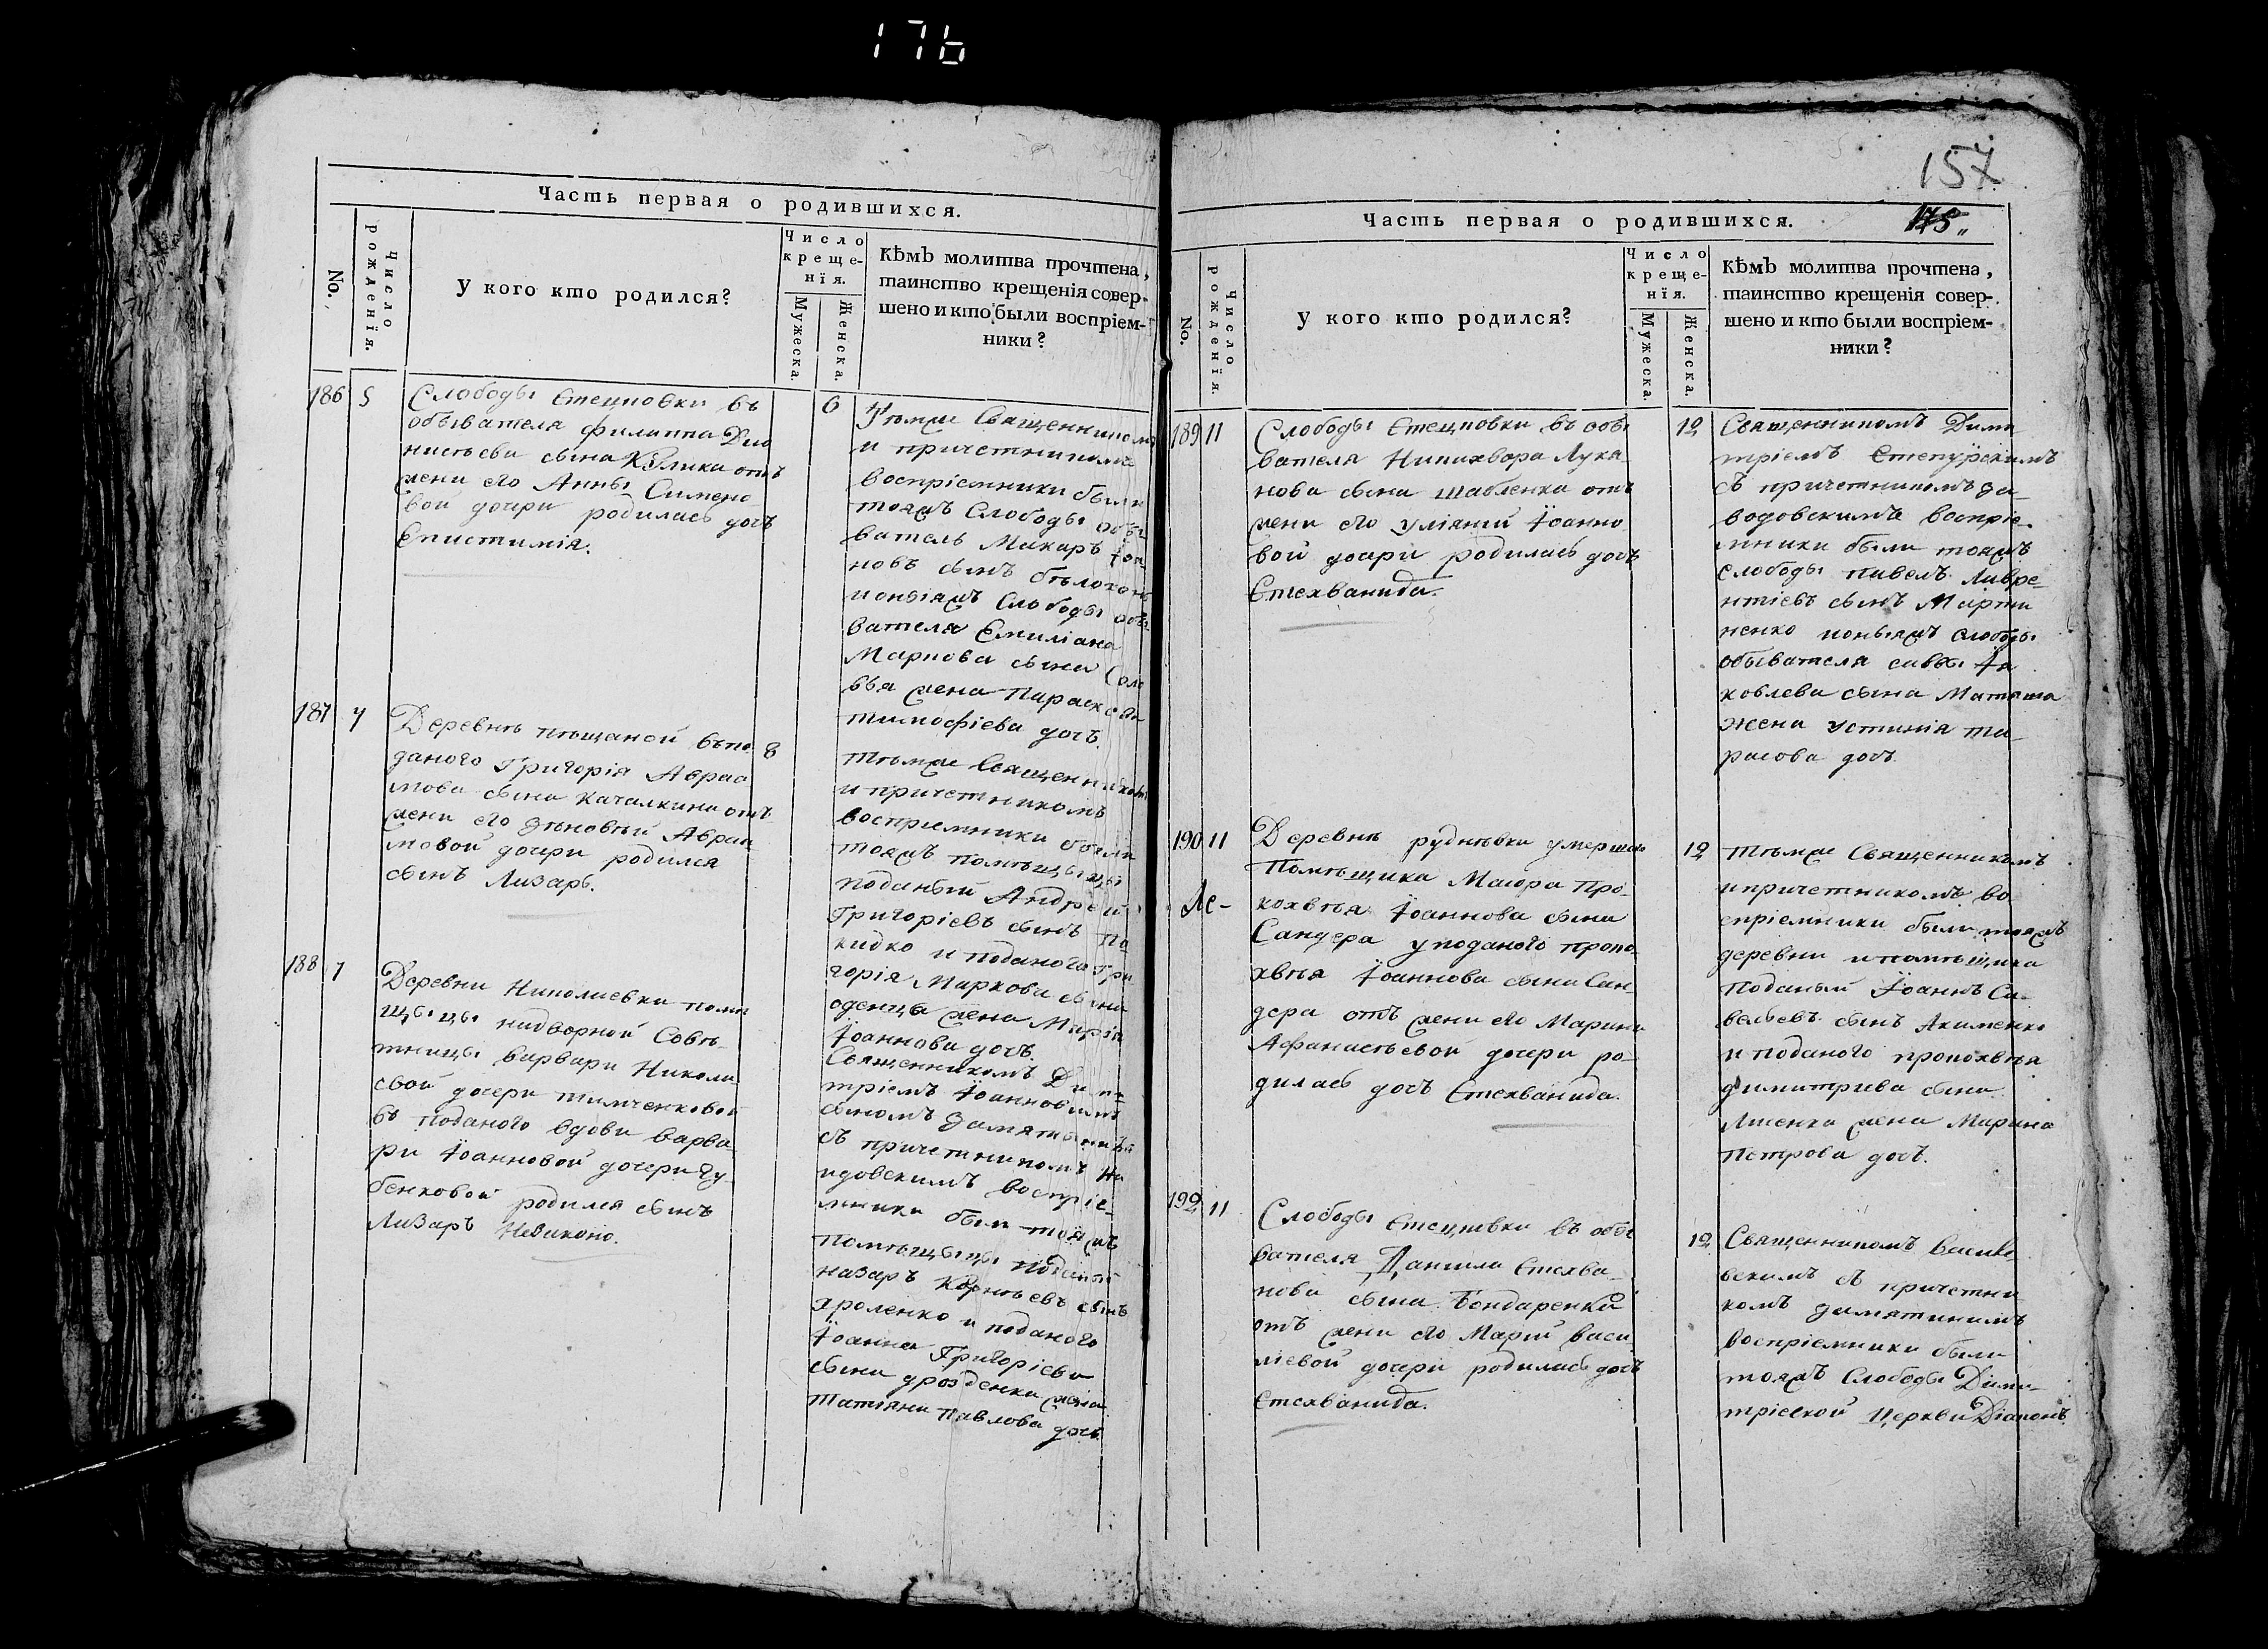 176
Часть первая о родившихся.
No.
Число рожденїя.
У кого кто родился?
Число
креще-
нїя.
Мужеска.
Женска.
Кѣмъ молитва прочтена,
таинство крещенїя совер-
шено и кто были воспрїем-
ники?
186
5
Слободы Стецповки въ
обывателя Филиппа Дио
нисьева сына Кулика отъ
жены его Анны Симено
вой дочери родилась дочъ
Епистимія.
6
Тѣмже Священникомъ
и причетникомъ
воспріемники были
тояжъ Слободы обы
ватель Макаръ Іоа
новъ сынъ
ионыяжъ Слободы обы
вателя Емиліана
Маркова сына
вья жена Параскевія
тимофіева дочъ.
187
7
Деревнѣ пѣщаной въ по
даного Григорія Авраа
мова сына Качалкина отъ
жени его Зѣновѣи Авраа
мовой дочери родился
сынъ Лазарь.
8
Тѣмже Священникомъ
и причетникомъ
воспріемники были
тояжъ помѣщыцы
поданый Андрей
Григоріевъ сынъ По
кидко и поданого Гри
горія Маркова сына
оденца жена Марія
Іоаннова дочъ.
188
7
Деревни Николаевки помѣ
щыцы надворной Совѣ
тницы варвари Никола
евой дочери тимченковой
въ поданого вдови варва
ри Іоанновой дочери Гу
бенковой родился сынъ
Лазаръ Невиконо.
Священникомъ Дими
тріемъ Іоанновымъ
сыномъ
съ причетникомъ
воспріе
мники были тояжъ
помѣщыцы поданый
назаръ Корнѣевъ сынъ
хроленко и поданого
Іоанна Григоріева
сына дрозденка жена
татіяна павлова дочъ
157
175
Часть первая о родившихся.
No.
Число рожденїя.
У кого кто родился?
Число
креще-
нїя.
Мужеска.
Женска.
Кѣмъ молитва прочтена,
таинство крещенїя совер-
шено и кто были воспрїем-
ники?
189
11
Слободы Стецповки въ обы
вателя Никихвора Лукя
нова сына Шабленка отъ
жени его уліянїй Іоанно
вой дочери родилась дочъ
Стехванида.
12
Священникомъ Дими
тріемъ Степурскимъ
съ причетникомъ За
водовскимъ воспріе
мники были тояжъ
слободы павелъ Лавре
нтіевъ сынъ Марти
ненко ионыяжъ слободы
обывателя саввы Іа
ковлева сына Матяша
жена устинія та
расова дочъ.
190
11
Ле-
Деревнѣ руднѣвки умершаго
Помѣщика Маіора Про
кохвѣя Іоаннова сына
Сандера у поданого проко
хвѣя Іоаннова сына Сан
дера отъ жени его Марини
Афанасьевой дочери ро
дилась дочъ Стехванида.
12
Тѣмже Священникомъ
и причетникомъ во
спріемники были тояжъ
деревни и помѣщика
поданый Іоаннъ Са
вельевъ сынъ Якименко
и поданого прокохвѣя
димитріева сына
Лисенка жена Марина
Петрова дочъ.
192
11
Слободы Стецповки въ обы
вателя Данила Стехва
нова сына Бондаренка
отъ жени его Марїй васи
ліевой дочери родилась дочъ
Стехванида.
12
Священникомъ
съ причетни
комъ замятинимъ
воспріемники были
тояжъ Слободы Дими
тріевской Церкви Діаконъ